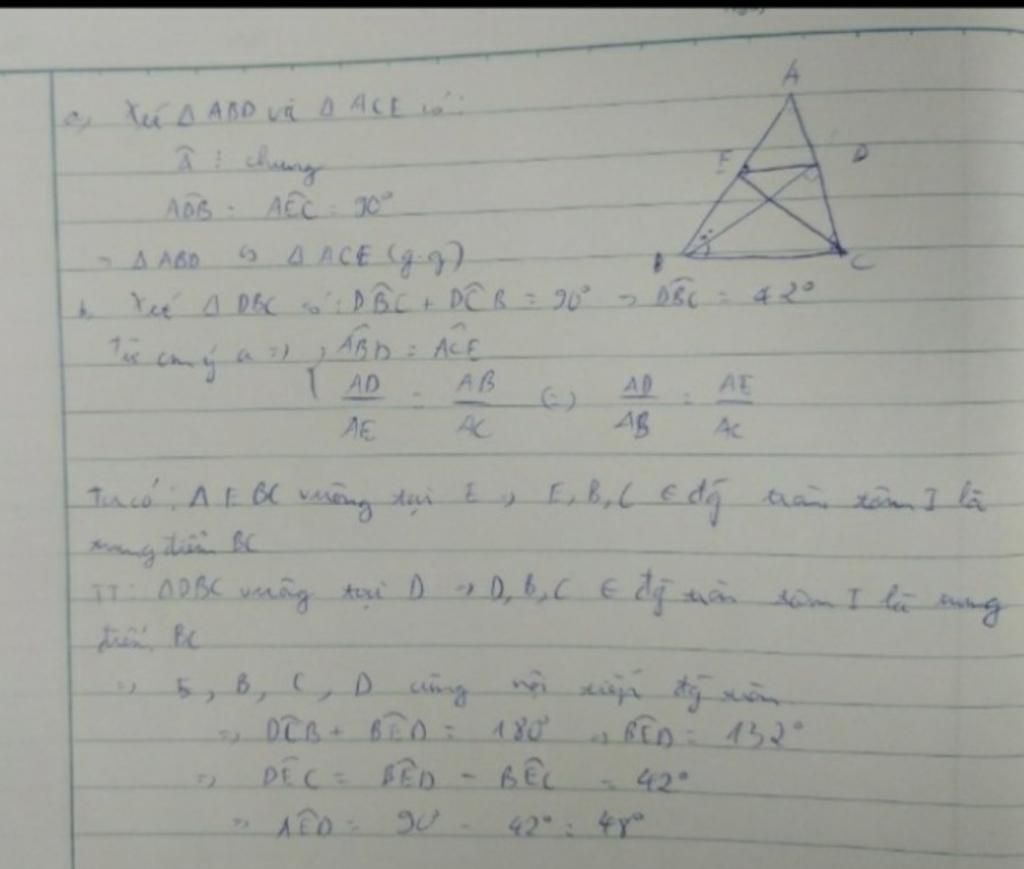 a, Xét Δ ABD và Δ ACE có:
A
Â : chung
E
D
ADB̂ = AEĈ = 90°
B
C
⇒ Δ ABD ∽ Δ ACE (g.g)
b, Xét Δ DBC có: DB̂C + DĈB = 90° ⇒ DB̂C = 42°
Từ cm ý a ⇒ AB̂D = AĈE
AD/AE = AB/AC (=) AD/AB = AE/AC
Ta có: Δ EBC vuông tại E ⇒ E, B, C ∈ đg tròn tâm I là
trung điểm BC
TT: ΔDBC vuông tại D → D, B, C ∈ đg tròn tâm I là trung
điểm BC
⇒ E, B, C, D cùng nội tiếp đg tròn
⇒ DĈB + BÊD = 180° ⇒ BÊD = 132°
⇒ DÊC = BÊD - BÊC = 42°
⇒ AÊD = 90 - 42° = 48°